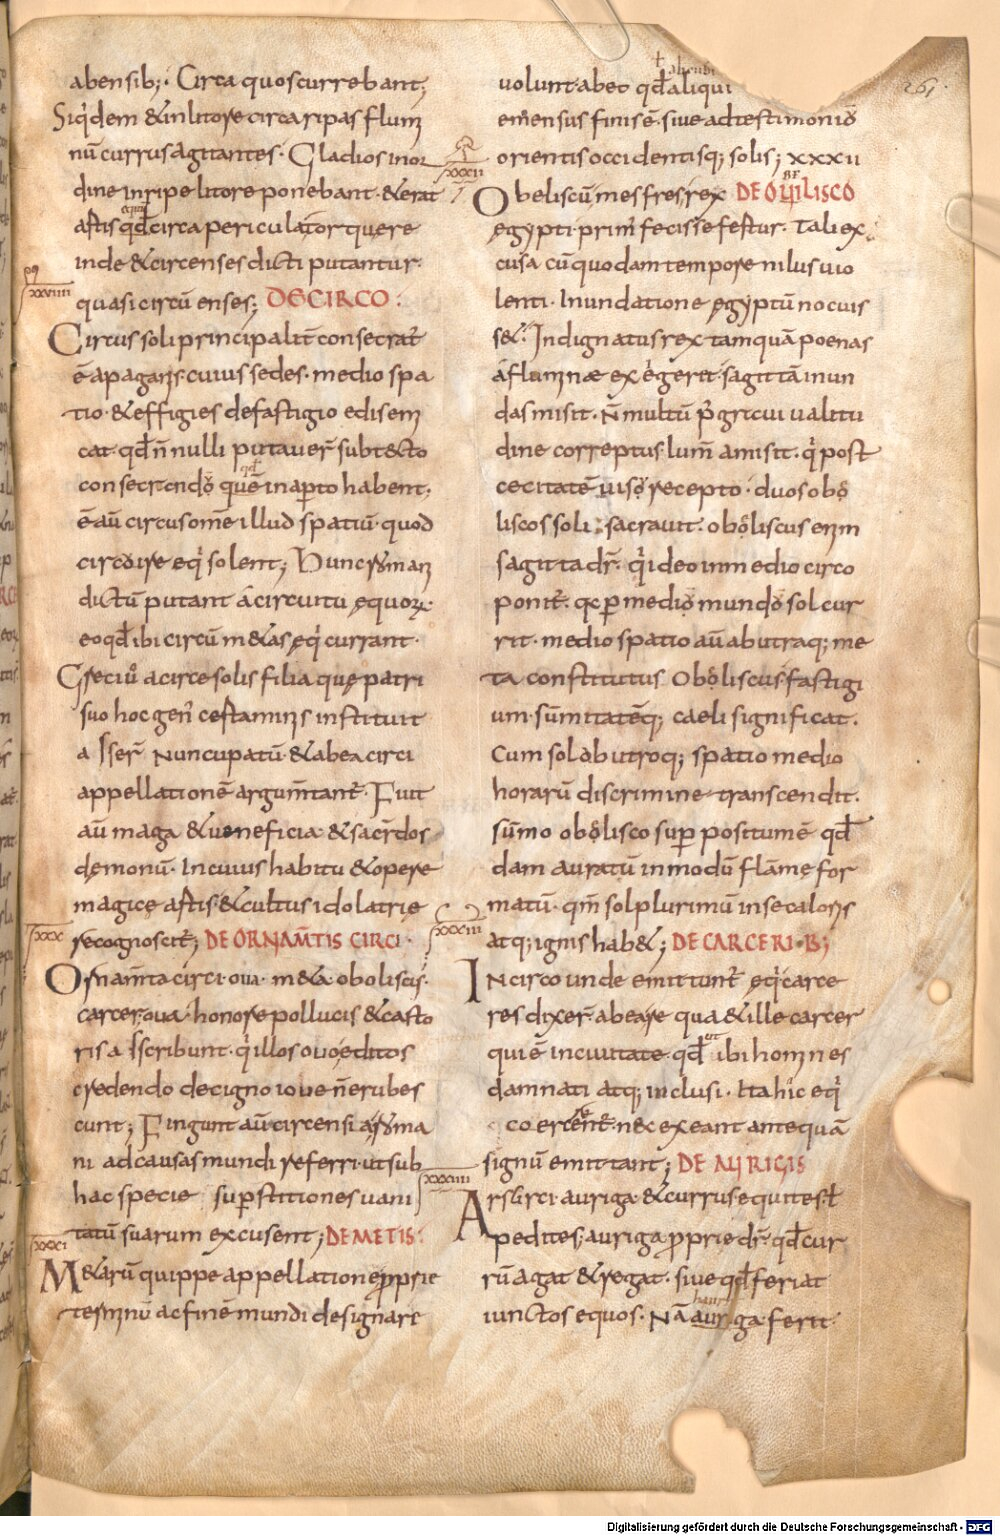 abensib;· Circa quos currebant;
Siq̇dem &inlitore circa ripas flum̄
nū currus agitantes· Gladios inor
dine inripe litore ponebant· &erat
equi
artis qđ circa pericula torquere
inde &circenses dicti putantur·
XXVIIII
quasi circū enses; DECIRCO:
Circus soli principalit̄ consecrat̄
ē apaganis· cuius sedes· medio spa
tio· &effigies defastigio edisem
cat· qđ n̄ nulli putauer̄ subtecto
qđ
consecrendo quē inap̄to habent·
ē aū circus om̄e illud spatiū· quod
circōire eq̇ solent; Hunc roman
dictū putant ácircuitu ęquoꝝ·
eoqđ ibi circū m&as ęq̇ currant·
Greciů acirce solis filia quę patri
suo hoc gen̄ certaminis instituit
a Iser̄ Nuncupatū· &abea circi
appellationē argum̄tant̄· Fuit
aū maga &ueneficia· &sacerdos
dęmonū· Incuius habitu &opere
magicę artis &cultus idolatrię
XXX
recognoscit̄; DE ORNAM̄TIS CIRCI·
Ornam̄ta circi· oua· m&a· oboliscis·
carcer· oua· honore pollucis &casto
ris a Iscribunt· q̇ illos ouo editos
credendo decigno ioue n̄ erubes
cunt; Fingunt aū circensi a roma
ni adcausas mundi referri· utsub
hac specie sup̄stitiones uani
XXXI
tatū suarum excusent; DEMETIS:
M&arū quippe appellatione ꝓprie
terminū acfinē mundi designare
261·
ƚ aliundi
uolunt· abeo qđ aliqui
emensus finis ē· siue adtestimoniō
orientis occidentisq; solis; XXXII
XXXII
BE
Obeliscū mesfres rex DEOPILISCO
ęgypti prim̄ fecisse fertur· Tali ex
cusa cū quodam tempore nilus uio
lenti· Inundatione ęgyptū nocuis
s&· Indignatus rex tamquā poenas
áflum̄næ exégerit· sagittā inun
das misit· N̄ multū p̄ grαui ualitu
dine correptus· lum̄ amisit· q̇ post
cecitatē uiso recepto· duos obo
liscos soli sacrauit· oboliscus enim
sagitta dr̄· q̇ ideo inmedio circo
ponit̄· qꝫ ꝑ mediō mundo sol cur
rit· medio spatio aū abutraq; me
ta constitutus Oboliscus fastigi
um· sūmitatēq; caeli significat·
Cum sol abutroq; spatio medio
horarū discrimine transcendit·
sūmo obolisco sup̄ positum ē qđ
dam auratū inmodū flāmę for
matū· qm̄ sol plurimū inse caloris
XXXIII
atq; ignis hab&; DECARCERI·B;
Incirco unde emittunt̄ ęq̇ carce
res dixer̄· abeare qua &ille carcer
ut
qui ē inciuitate· qđ ibi homines
damnati atq; inclusi· Ita hic eq̇
coercent̄· n& exeant antequā
signū emittant; DE AURIGIS
XXXIIII
Ars circi· auriga· &currus equites· ƚ
pedites; auriga ꝓprie dr̄· qđ cur
rū agat &regat· siue qđ feriat
hauri
iunctos equos· Nā auriga ferit·
Digitalisierung gefördert durch die Deutsche Forschungsgemeinschaft - DFG